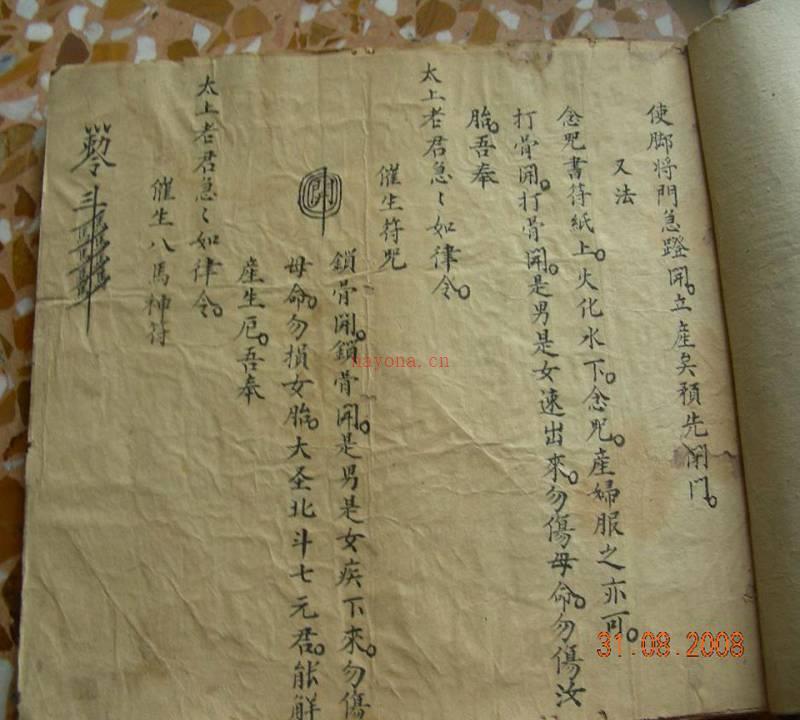 使脚将門急蹬開。立產矣預先閉門。
又法
念咒書符紙上。火化水下。念咒。產婦服之亦可。
打骨開。打骨開。是男是女速出來。勿傷母命。勿傷汝
胎。吾奉
太上老君急〻如律令。
催生符咒
鎖骨開。鎖骨開。是男是女疾下來。勿傷
母命。勿損女胎。大圣北斗七元君。能解
產生厄。吾奉
太上老君急〻如律令。
催生八馬神符
nayona.cn
31.08.2008